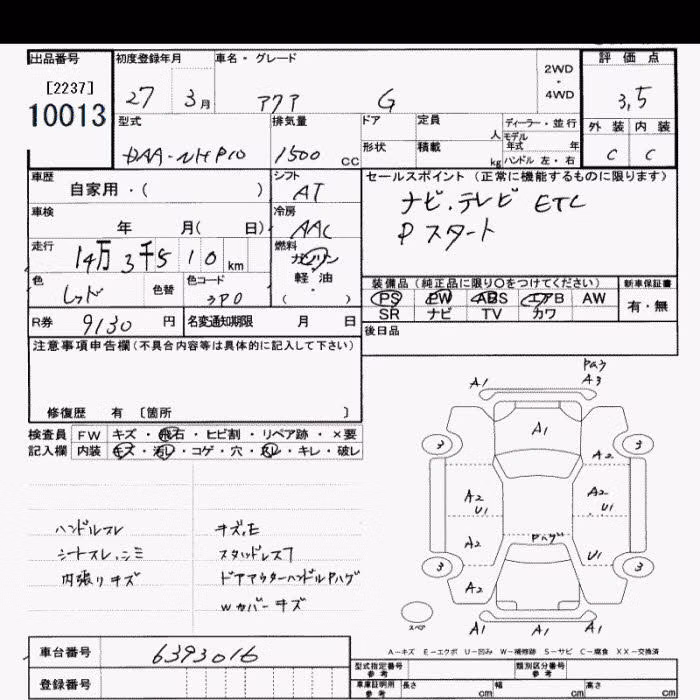 出品番号 初度登録年月 車名・グレード 2WD・4WD 評価点
[2237]
10013
27 3月 アクア G 3,5
型式 排気量 ドア 定員 人 ディーラー・並行 外装 内装
モデル年式 年
DAA-NHP10 1500 CC 形状 積載 kg ハンドル 左・右 C C
車歴 シフト セールスポイント (正常に機能するものに限ります)
自家用・( ) AT ナビ.テレビ ETC
車検 冷房 Pスタート
年 月( 日) AAC
走行 燃料
14万3千5 10 km ガソリン
軽油
( )
色 色替 色コード 装備品(純正品に限り〇をつけてください) 新車保証書
レッド 3P0 PS PW ABS エアB AW 有・無
SR ナビ TV カワ
R券 9130 円 名変通知期限 月 日 後日品
注意事項申告欄(不具合内容等は具体的に記入して下さい)
修復歴 有 〔箇所 〕
検査員 FW キズ・飛石・ヒビ割・リペア跡・×要
記入欄 内装 キズ・汚レ・コゲ・穴・スレ・キレ・破レ
ハンドルスレ
シートスレ.シミ
内張りキズ
キズ.E
スタッドレス7
ドアアウターハンドルPハゲ
Wカバーキズ
Pハゲ
A1 A3
A1
3 3
A2
A2 U1 A2 U1
Pハゲ
A2 U1
3 3
A2
スペア
A1 A1 A1
A-キズ E-エクボ U-凹み W-補修跡 S-サビ C-腐食 XX-交換済
車台番号 6393016
登録番号
型式指定番号 参考 類別区分番号 参考
車庫証明用 参考 長さ cm 幅 cm 高さ cm